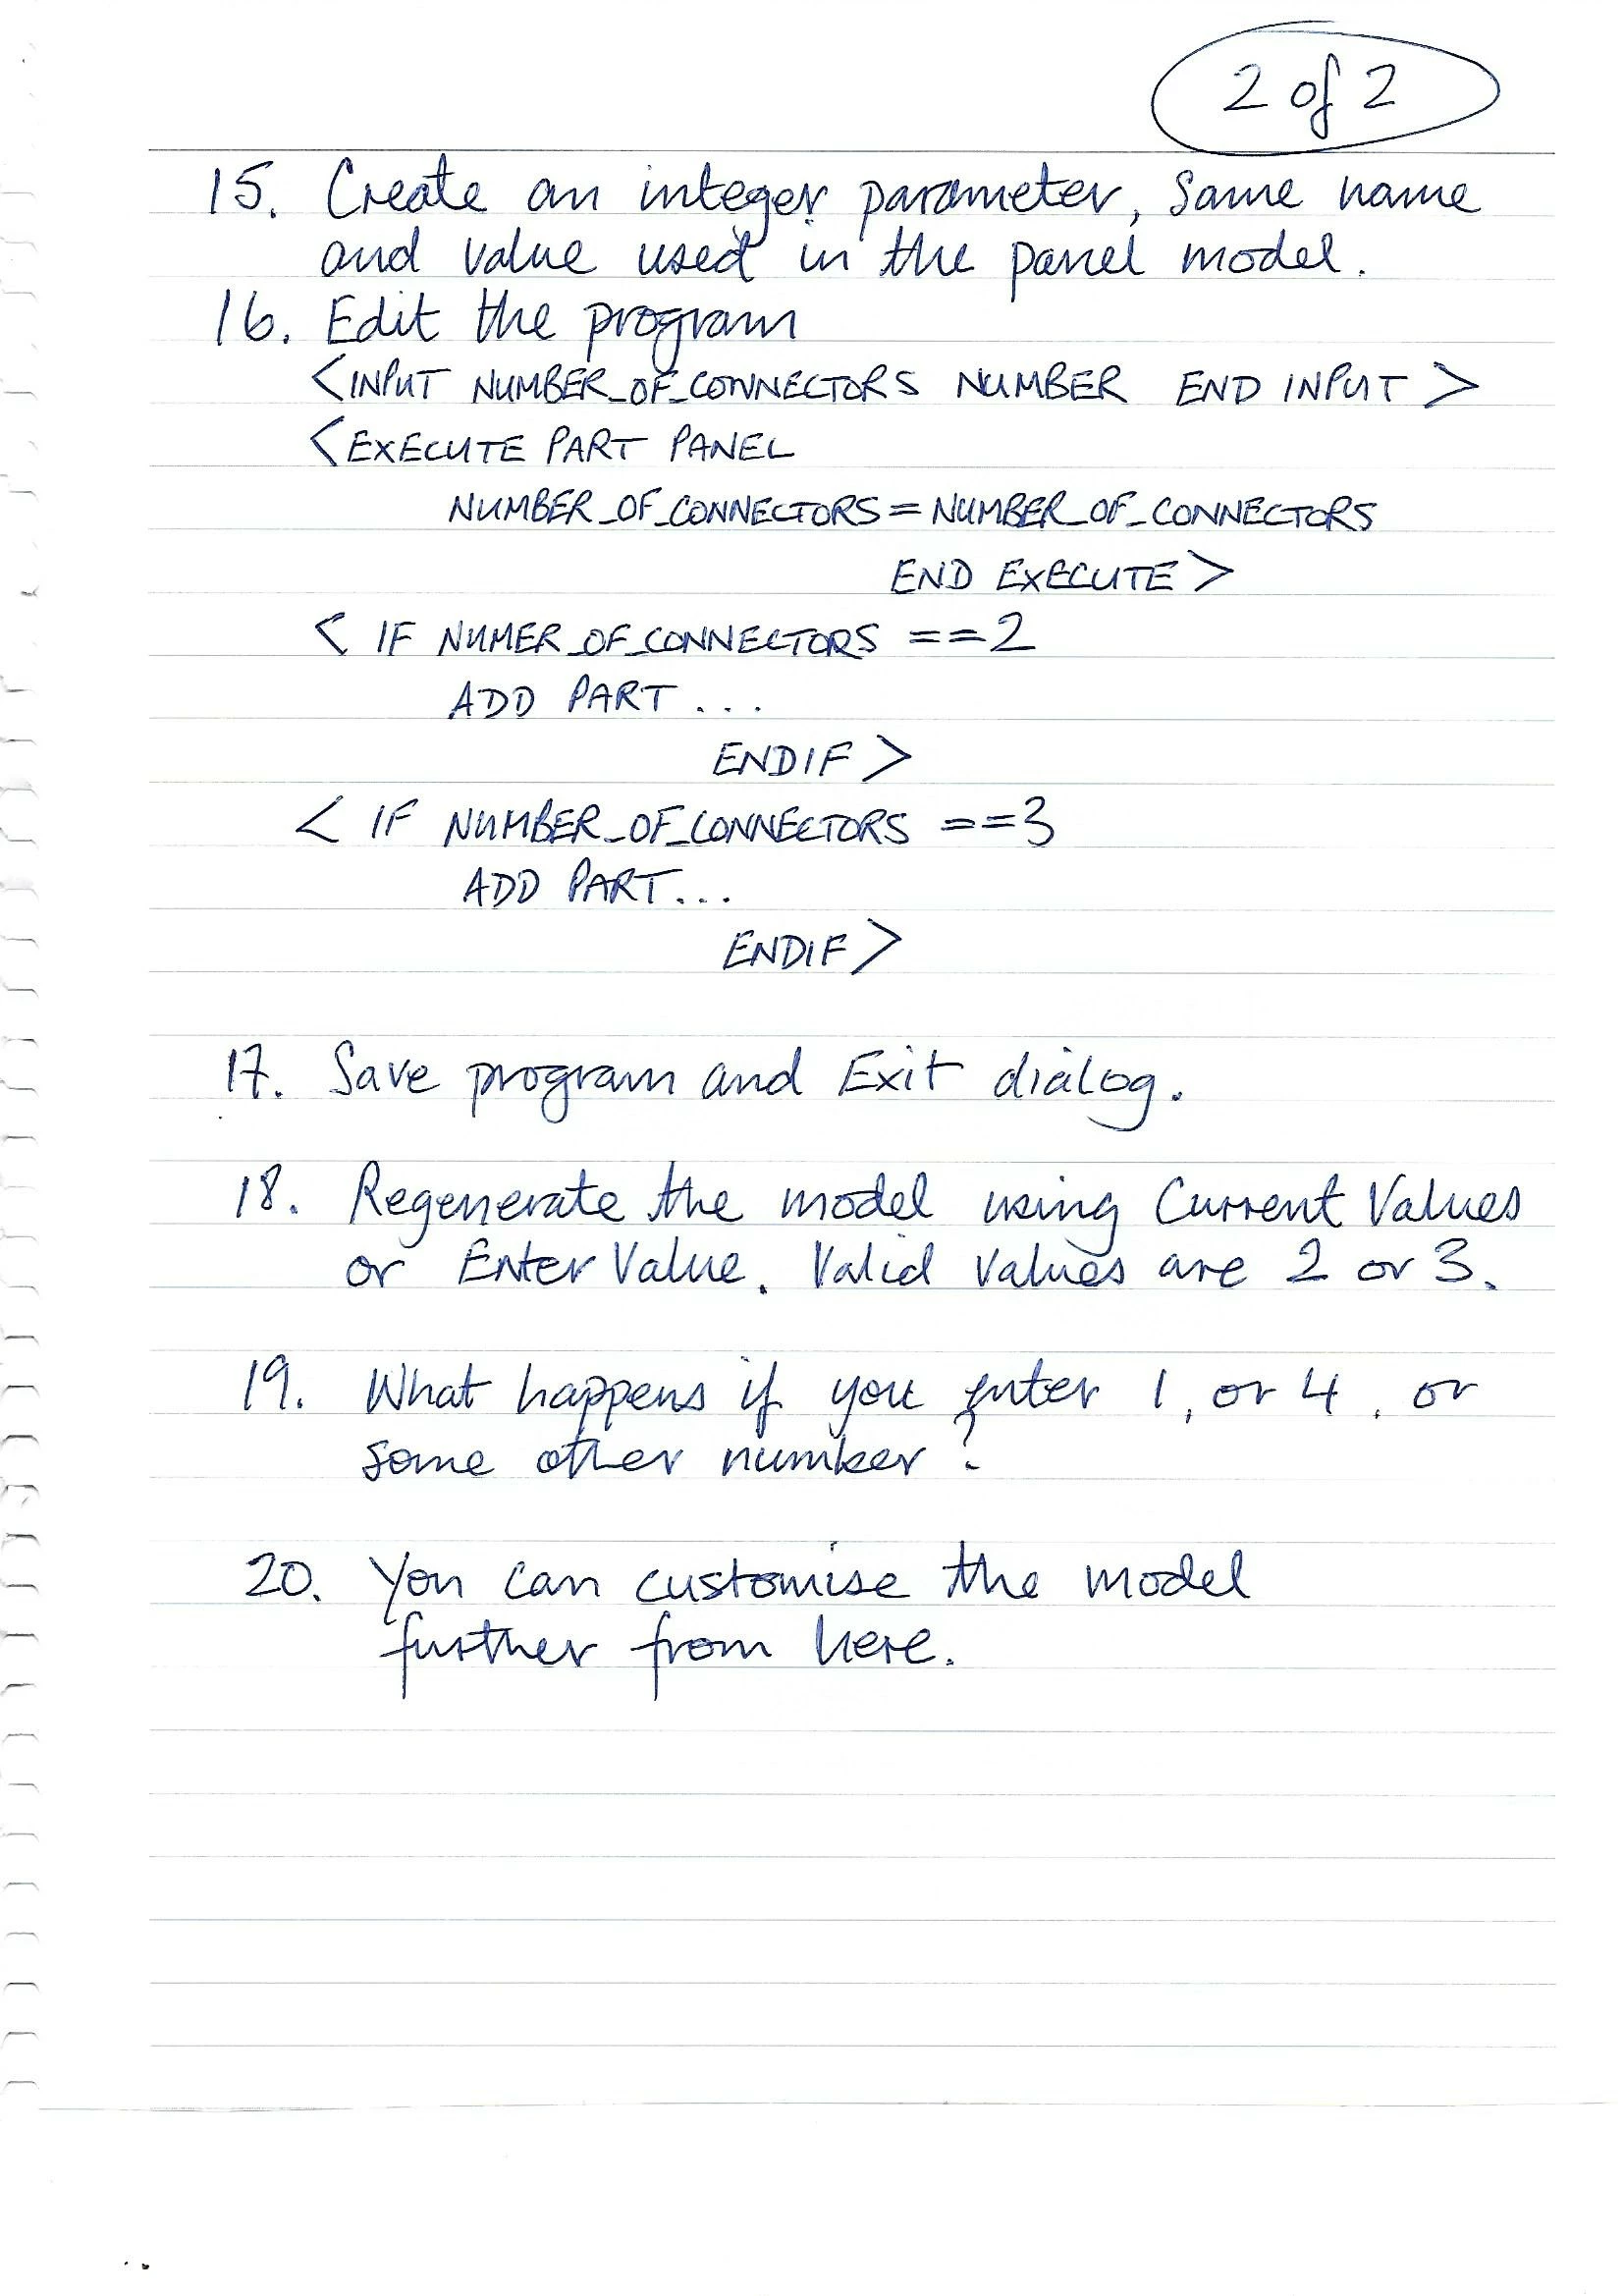 2 of 2
15. Create an integer parameter, same name
and value used in the panel model.
16. Edit the program
<INPUT NUMBER_OF_CONNECTORS NUMBER END INPUT>
<EXECUTE PART PANEL
NUMBER_OF_CONNECTORS = NUMBER_OF_CONNECTORS
END EXECUTE>
< IF NUMER_OF_CONNECTORS ==2
ADD PART ...
ENDIF >
< IF NUMBER_OF_CONNECTORS ==3
ADD PART...
ENDIF >
17. Save program and Exit dialog.
18. Regenerate the model using Current Values
or Enter Value. Valid Values are 2 or 3.
19. What happens if you enter 1, or 4, or
some other number?
20. You can customise the model
further from here.